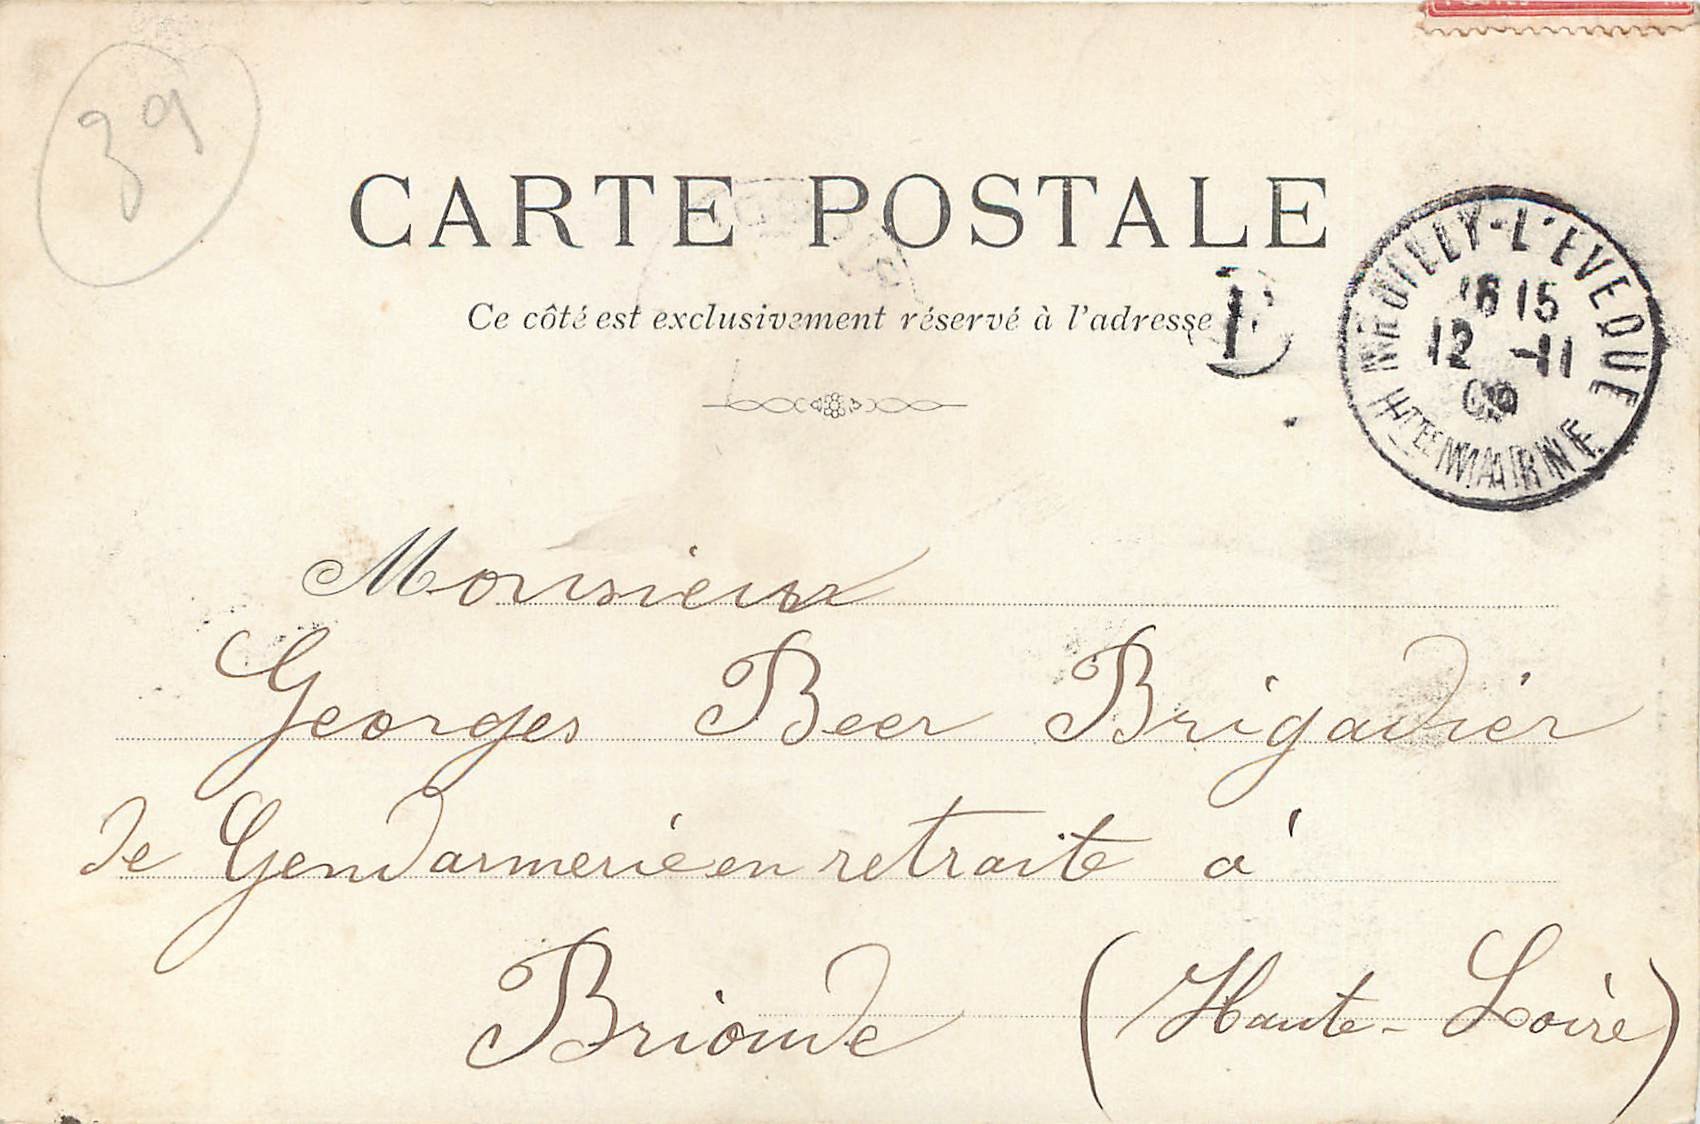 39
POSTES
CARTE POSTALE
NEUILLY-L'EVEQUE
16 15
12 -11
09
HTE MARNE
Ce côté est exclusivement réservé à l'adresse
E
Monsieur
Georges Beer Brigadier
de Gendarmerie en retraite à
Brioude (Haute-Loire)